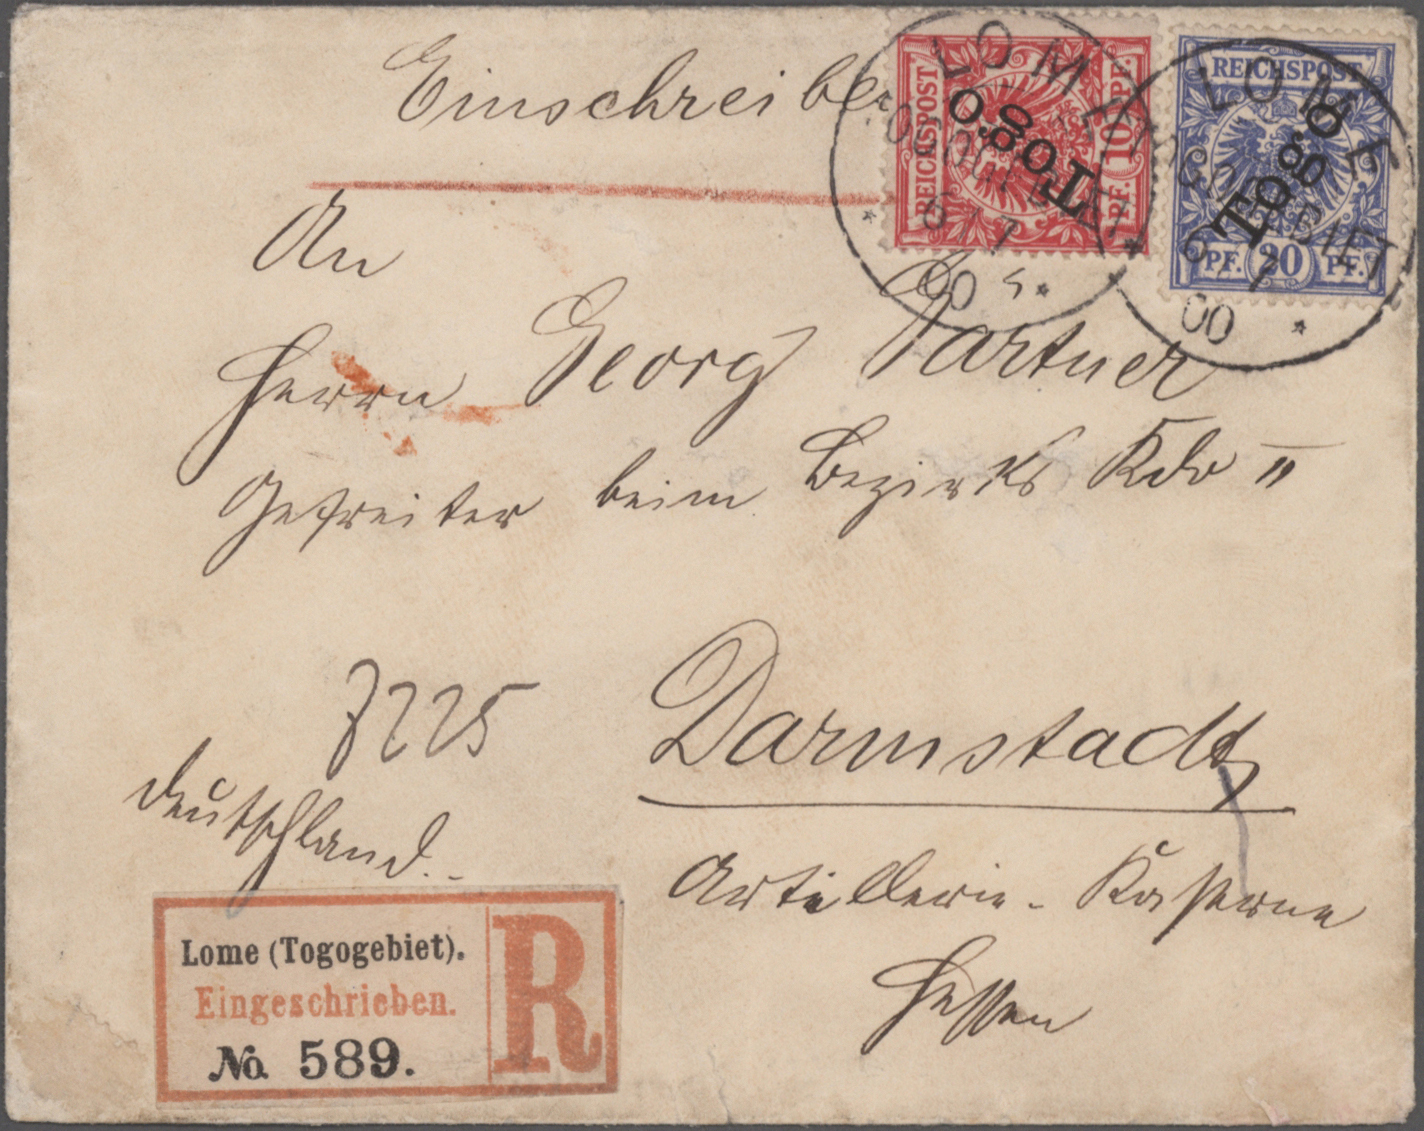 Einschreiben
REICHSPOST
10 PF.
PF.
Togo
REICHSPOST
PF. 20 PF.
Togo
LOME
TOGOGEBIET
6/7
00
LOME
TOGOGEBIET
6/7
00
An
Herrn Georg Gärtner
Gefreiter beim Bezirks Kdo II
7225
Darmstadt
Deutschland.
Artillerie-Kaserne
Hessen
Lome (Togogebiet).
Eingeschrieben.
No. 589.
R